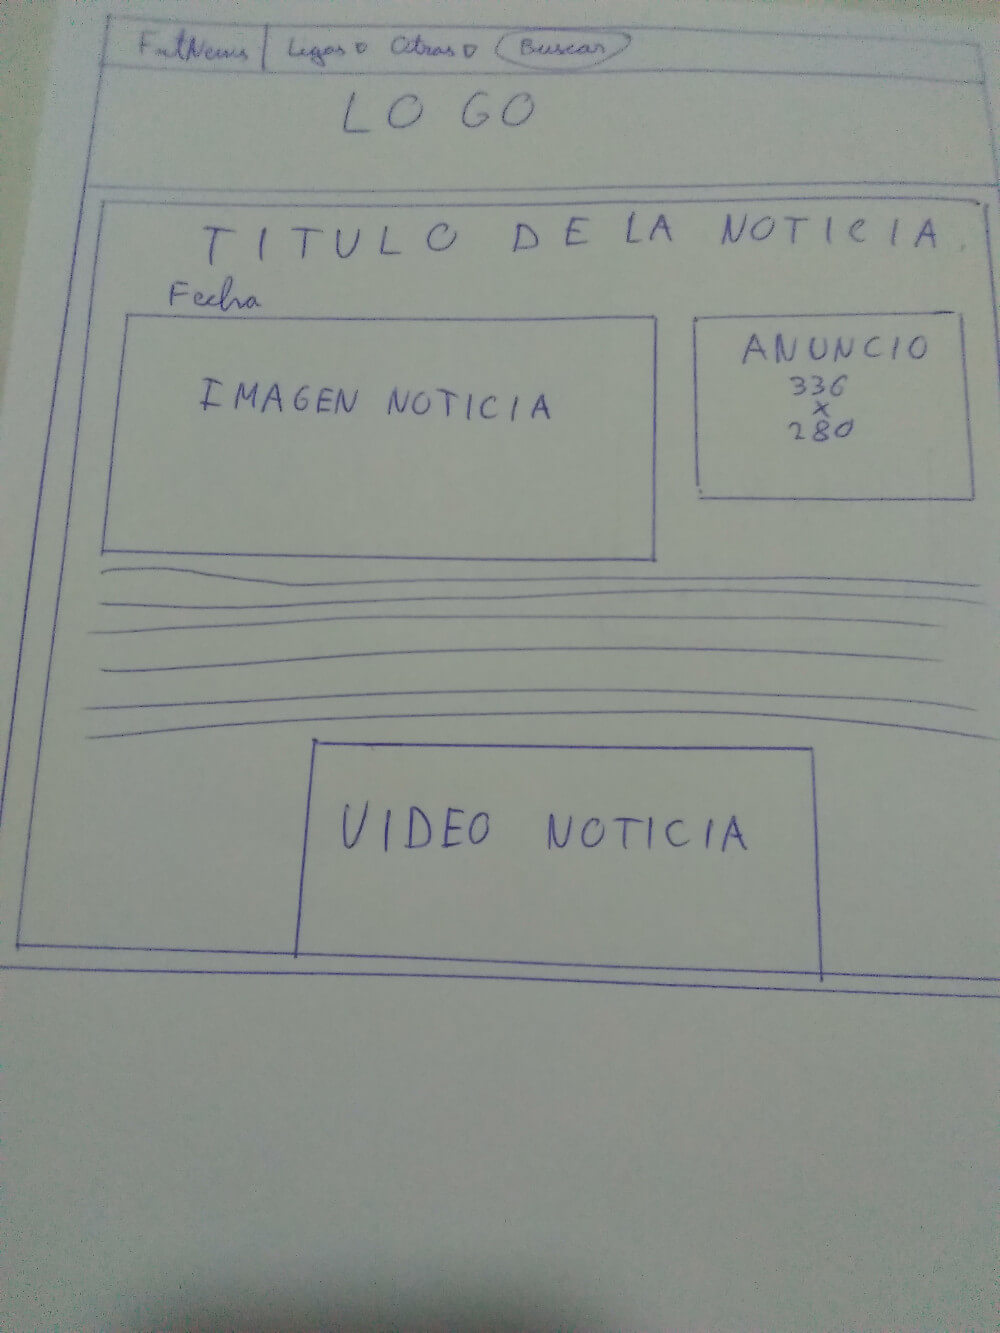 FutNews Ligas Otras Buscar
LOGO
TITULO DE LA NOTICIA
Fecha
IMAGEN NOTICIA
ANUNCIO
336
x
280
VIDEO NOTICIA